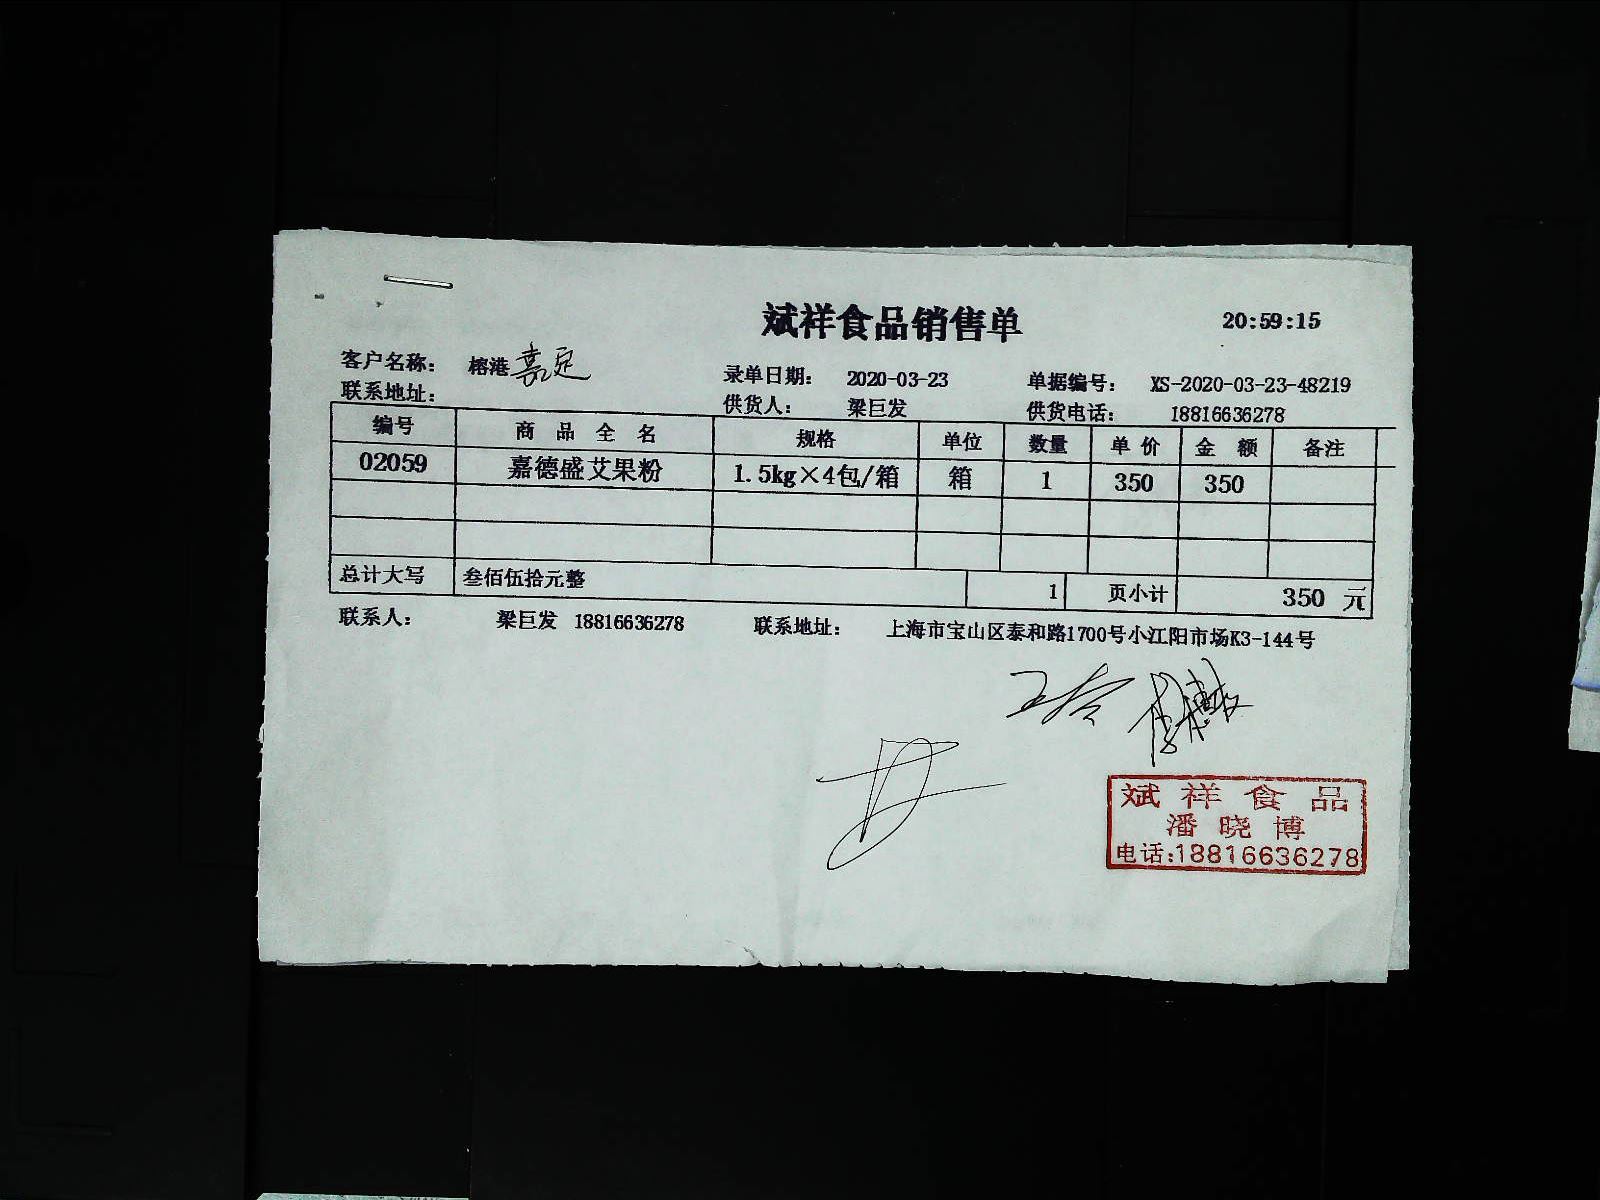 斌祥食品销售单 20:59:15
客户名称： 榕港嘉定 录单日期： 2020-03-23 单据编号： XS-2020-03-23-48219
联系地址： 供货人： 梁巨发 供货电话： 18816636278
编号 商品全名 规格 单位 数量 单价 金额 备注
02059 嘉德盛艾果粉 1.5kg×4包/箱 箱 1 350 350
总计大写 叁佰伍拾元整 1 页小计 350 元
联系人： 梁巨发 18816636278 联系地址： 上海市宝山区泰和路1700号小江阳市场K3-144号
斌祥食品
潘晓博
电话:18816636278